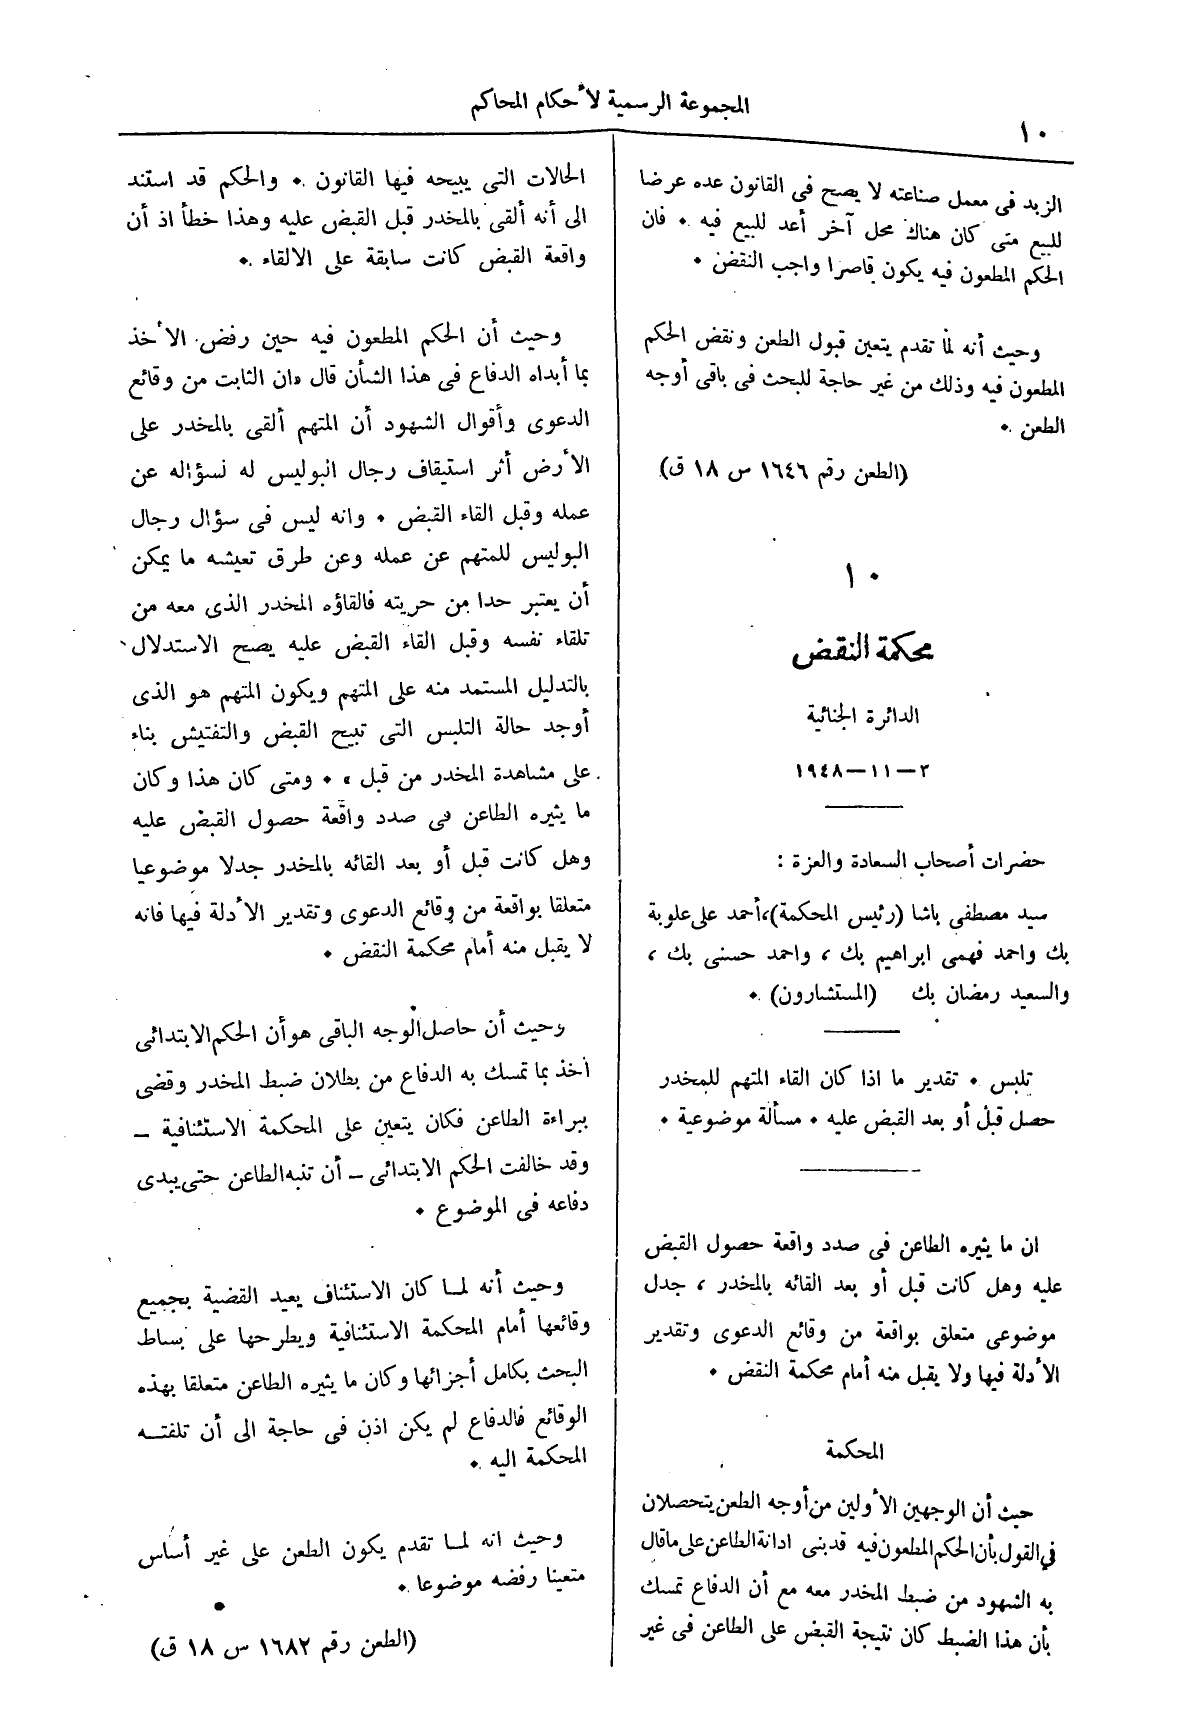 المجموعة الرسمية لأحكام المحاكم
١٠
الزبد فى معمل صناعته لا يصح فى القانون عده عرضا
للبيع متى كان هناك محل آخر أعد للبيع فيه . فان
الحكم المطعون فيه يكون قاصرا واجب النقض .
وحيث أنه لما تقدم يتعين قبول الطعن ونقض الحكم
المطعون فيه وذلك من غير حاجة للبحث فى باقى أوجه
الطعن .
(الطعن رقم ١٦٤٦ س ١٨ ق)
١٠
محكمة النقض
الدائرة الجنائية
٢-١١-١٩٤٨
حضرات أصحاب السعادة والعزة :
سيد مصطفى باشا (رئيس المحكمة)، أحمد على علوبة
بك واحمد فهمى ابراهيم بك ، واحمد حسنى بك ،
والسعيد رمضان بك (المستشارون) .
تلبس . تقدير ما اذا كان القاء المتهم للمخدر
حصل قبل أو بعد القبض عليه . مسألة موضوعية .
ان ما يثيره الطاعن فى صدد واقعة حصول القبض
عليه وهل كانت قبل أو بعد القائه بالمخدر ، جدل
موضوعى متعلق بواقعة من وقائع الدعوى وتقدير
الأدلة فيها ولا يقبل منه أمام محكمة النقض .
المحكمة
حيث أن الوجهين الأولين من أوجه الطعن يتحصلان
فى القول بأن الحكم المطعون فيه قد بنى ادانة الطاعن على ما قال
به الشهود من ضبط المخدر معه مع أن الدفاع تمسك
بأن هذا الضبط كان نتيجة القبض على الطاعن فى غير
الحالات التى يبيحه فيها القانون . والحكم قد استند
الى أنه ألقى بالمخدر قبل القبض عليه وهذا خطأ اذ أن
واقعة القبض كانت سابقة على الالقاء .
وحيث أن الحكم المطعون فيه حين رفض الأخذ
بما أبداه الدفاع فى هذا الشأن قال «ان الثابت من وقائع
الدعوى وأقوال الشهود أن المتهم ألقى بالمخدر على
الأرض أثر استيقاف رجال البوليس له لسؤاله عن
عمله وقبل القاء القبض . وانه ليس فى سؤال رجال
البوليس للمتهم عن عمله وعن طرق تعيشه ما يمكن
أن يعتبر حدا من حريته فالقاؤه المخدر الذى معه من
تلقاء نفسه وقبل القاء القبض عليه يصح الاستدلال
بالتدليل المستمد منه على المتهم ويكون المتهم هو الذى
أوجد حالة التلبس التى تبيح القبض والتفتيش بناء
على مشاهدة المخدر من قبل » . ومتى كان هذا وكان
ما يثيره الطاعن فى صدد واقعة حصول القبض عليه
وهل كانت قبل أو بعد القائه بالمخدر جدلا موضوعيا
متعلقا بواقعة من وقائع الدعوى وتقدير الأدلة فيها فانه
لا يقبل منه أمام محكمة النقض .
وحيث أن حاصل الوجه الباقى هو أن الحكم الابتدائى
أخذ بما تمسك به الدفاع من بطلان ضبط المخدر وقضى
ببراءة الطاعن فكان يتعين على المحكمة الاستئنافية –
وقد خالفت الحكم الابتدائى – أن تنبه الطاعن حتى يبدى
دفاعه فى الموضوع .
وحيث أنه لما كان الاستئناف يعيد القضية بجميع
وقائعها أمام المحكمة الاستئنافية ويطرحها على بساط
البحث بكامل أجزائها وكان ما يثيره الطاعن متعلقا بهذه
الوقائع فالدفاع لم يكن اذن فى حاجة الى أن تلفته
المحكمة اليه .
وحيث انه لما تقدم يكون الطعن على غير أساس
متعينا رفضه موضوعا .
(الطعن رقم ١٦٨٢ س ١٨ ق)